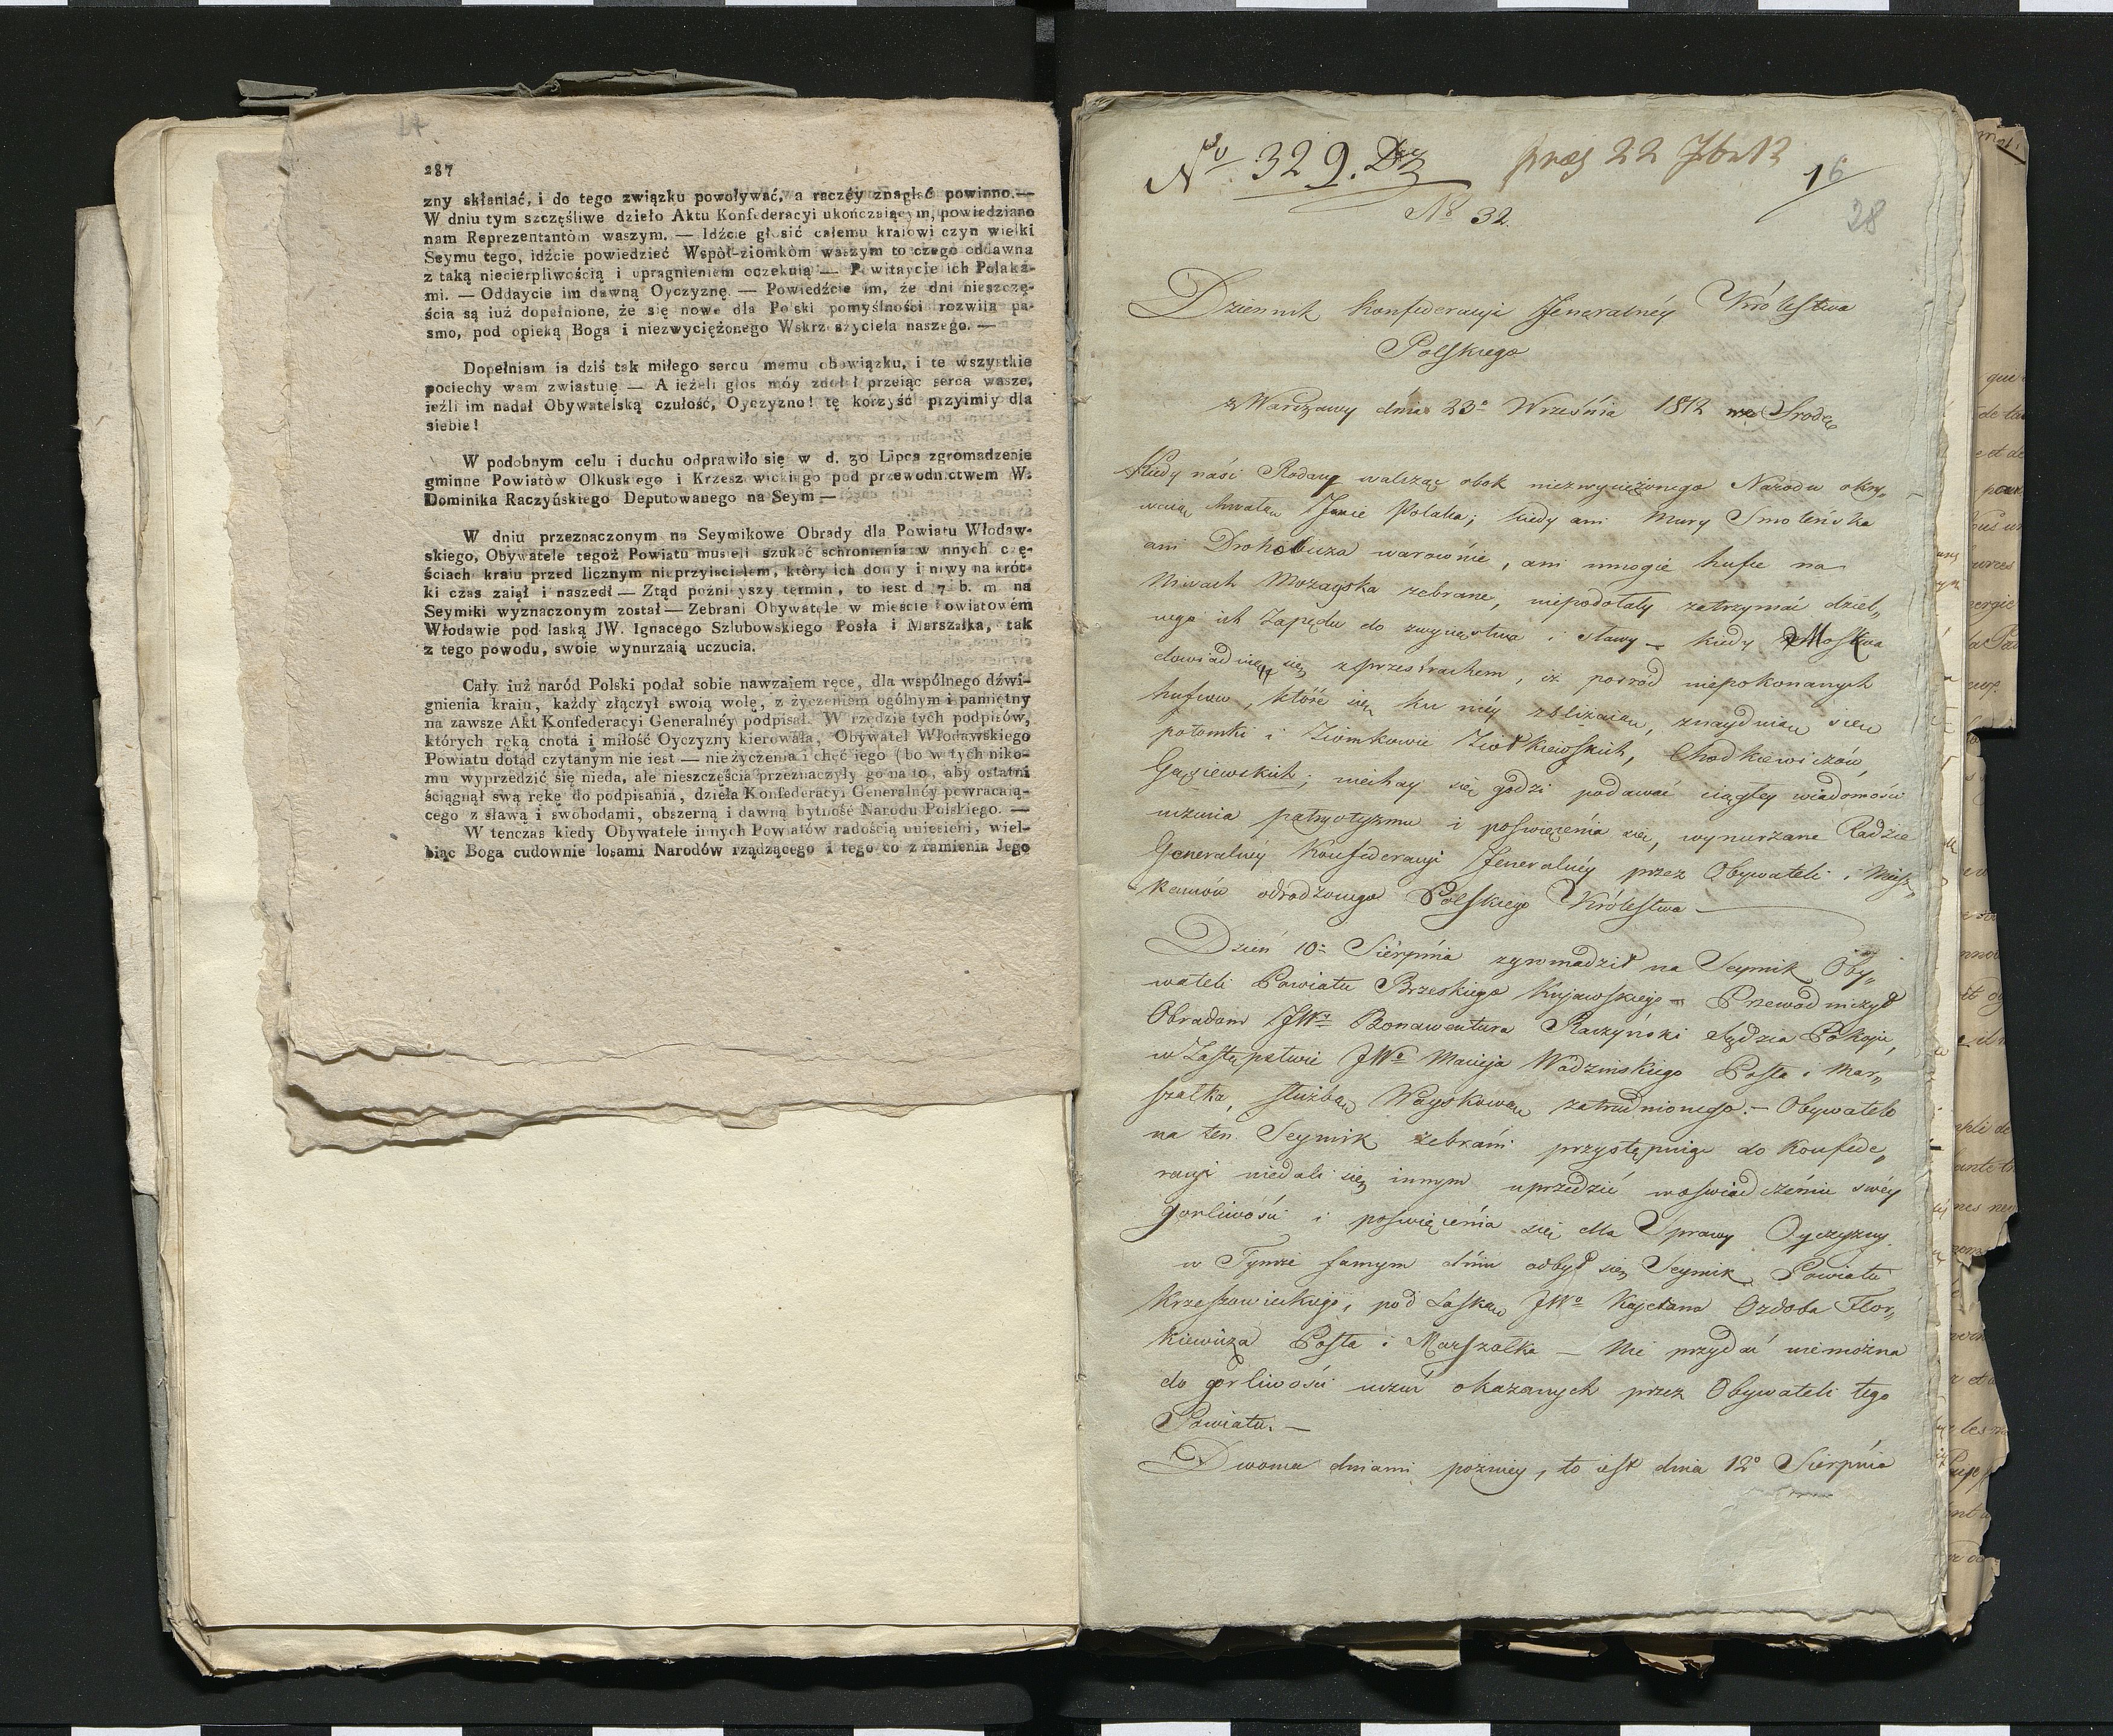 287
zny skłaniać, i do tego związku powoływać, a raczéy znaglać powinno.—
W dniu tym szczęśliwe dzieło Aktu Konfederacyi ukończaiącym, powiedziano
nam Reprezentantóm waszym. — Idźcie głosić całemu kraiowi czyn wielki
Seymu tego, idźcie powiedzieć Współ-ziomkóm waszym to czego oddawna
z taką niecierpliwością i upragnieniem oczekuią — Powitaycie ich Polaka-
mi. — Oddaycie im dawną Oyczyznę. — Powiedźcie im, że dni nieszczę-
ścia są iuż dopełnione, że się nowe dla Polski pomyślności rozwiia pa-
smo, pod opieką Boga i niezwyciężonego Wskrzeszyciela naszego. —
Dopełniam ia dziś tak miłego sercu memu obowiązku, i te wszystkie
pociechy wam zwiastuię — A ieżeli głos móy zdołał przeiąc serca wasze,
ieźli im nadał Obywatelską czułość, Oyczyzno! tę korzyść przyimiy dla
siebie!
W podobnym celu i duchu odprawiło się w d. 30 Lipca zgromadzenie
gminne Powiatów Olkuskiego i Krzeszowickiego pod przewodnictwem W.
Dominika Raczyńskiego Deputowanego na Seym —
W dniu przeznaczonym na Seymikowe Obrady dla Powiatu Włodaw-
skiego, Obywatele tegoż Powiatu musieli szukać schronienia w innych czę-
ściach kraiu przed licznym nieprzyiacielem, który ich domy i niwy na krót-
ki czas zaiął i naszedł — Ztąd poźnieyszy termin, to iest d. 7 b. m na
Seymiki wyznaczonym został — Zebrani Obywatele w mieście Powiatowém
Włodawie pod laską JW. Ignacego Szlubowskiego Posła i Marszałka, tak
z tego powodu, swoie wynurzaią uczucia.
Cały iuż naród Polski podał sobie nawzaiem ręce, dla wspólnego dźwi-
gnienia kraiu, każdy złączył swoią wolę, z życzeniem ogólnym i pamiętny
na zawsze Akt Konfederacyi Generalnéy podpisał. W rzędzie tych podpisów,
których ręką cnota i miłość Oyczyzny kierowała, Obywatel Włodawskiego
Powiatu dotąd czytanym nie iest — nie życzenia i chęć iego (bo w tych niko-
mu wyprzedzić się nieda, ale nieszczęścia przeznaczyły go na to, aby ostatni
ściągnął swą rękę do podpisania, dzieła Konfederacyi Generalnéy powracaią-
cego z sławą i swobodami, obszerną i dawną bytność Narodu Polskiego. —
W tenczas kiedy Obywatele innych Powiatów radością uniesieni, wiel-
biąc Boga cudownie losami Narodów rządzącego i tego co z ramienia Jego
No 329. Dz
præs 22 7br 12
16
28
No 32.
Dziennik Konfederacyi Jeneralnéy Królestwa
Polskiego
z Warszawy dnia 23o Września 1812 we Srodę
Kiedy nasi Rodacy walcząc obok niezwyciężonego Narodu okry„
waią chwałą Imie Polaka; kiedy ani Mury Smoleńska
ani Drohobuza warownie, ani mnogie hufce na
Niwach Mozayska zebrane, niepodołały zatrzymać dziel„
nego ich Zapędu do zwycięstwa i sławy — kiedy Moskwa
dowiaduie się z przestrachem, iż pośród niepokonanych
hufców, które się ku niéy zbliżaią, znayduią się
potomki i Ziomkowie Żołkiewskich, Chodkiewiczów,
Gąsiewskich; niechay się godzi podawać ciągłey wiadomości
uczucia patryotyzmu i poświęcenia się, wynurzane Radzie
Generalnéy Konfederacyi Jeneralnéy przez Obywateli i Miesz„
kańców odrodzonego Polskiego Królestwa —
Dzień 10o Sierpnia zgromadził na Seymik Oby„
wateli Powiatu Brzeskiego Kujawskiego — Przewodniczył
Obradom JWy Bonawentura Raczyński Sędzia Pokoju,
w Zastępstwie JWo Macieja Wodzinskiego Posła i Mar„
szałka, służbą Woyskową zatrudnionego. — Obywatele
na ten Seymik zebrani przystępuiąc do Konfede„
racyi niedali się innym uprzedzić w oświadczeniu swéy
gorliwości i poswięcenia się dla Sprawy Oyczyzny.
w Tymże samym dniu odbył się Seymik Powiatu
Krzeszowickiego, pod Laską JWo Kajetana Ozdoba Flor„
kiewicza Posła i Marszałka — Nic przydać niemożna
do gorliwości uczuć okazanych przez Obywateli tego
Powiatu. —
Dwoma dniami poźniey, to iest dnia 12o Sierpnia